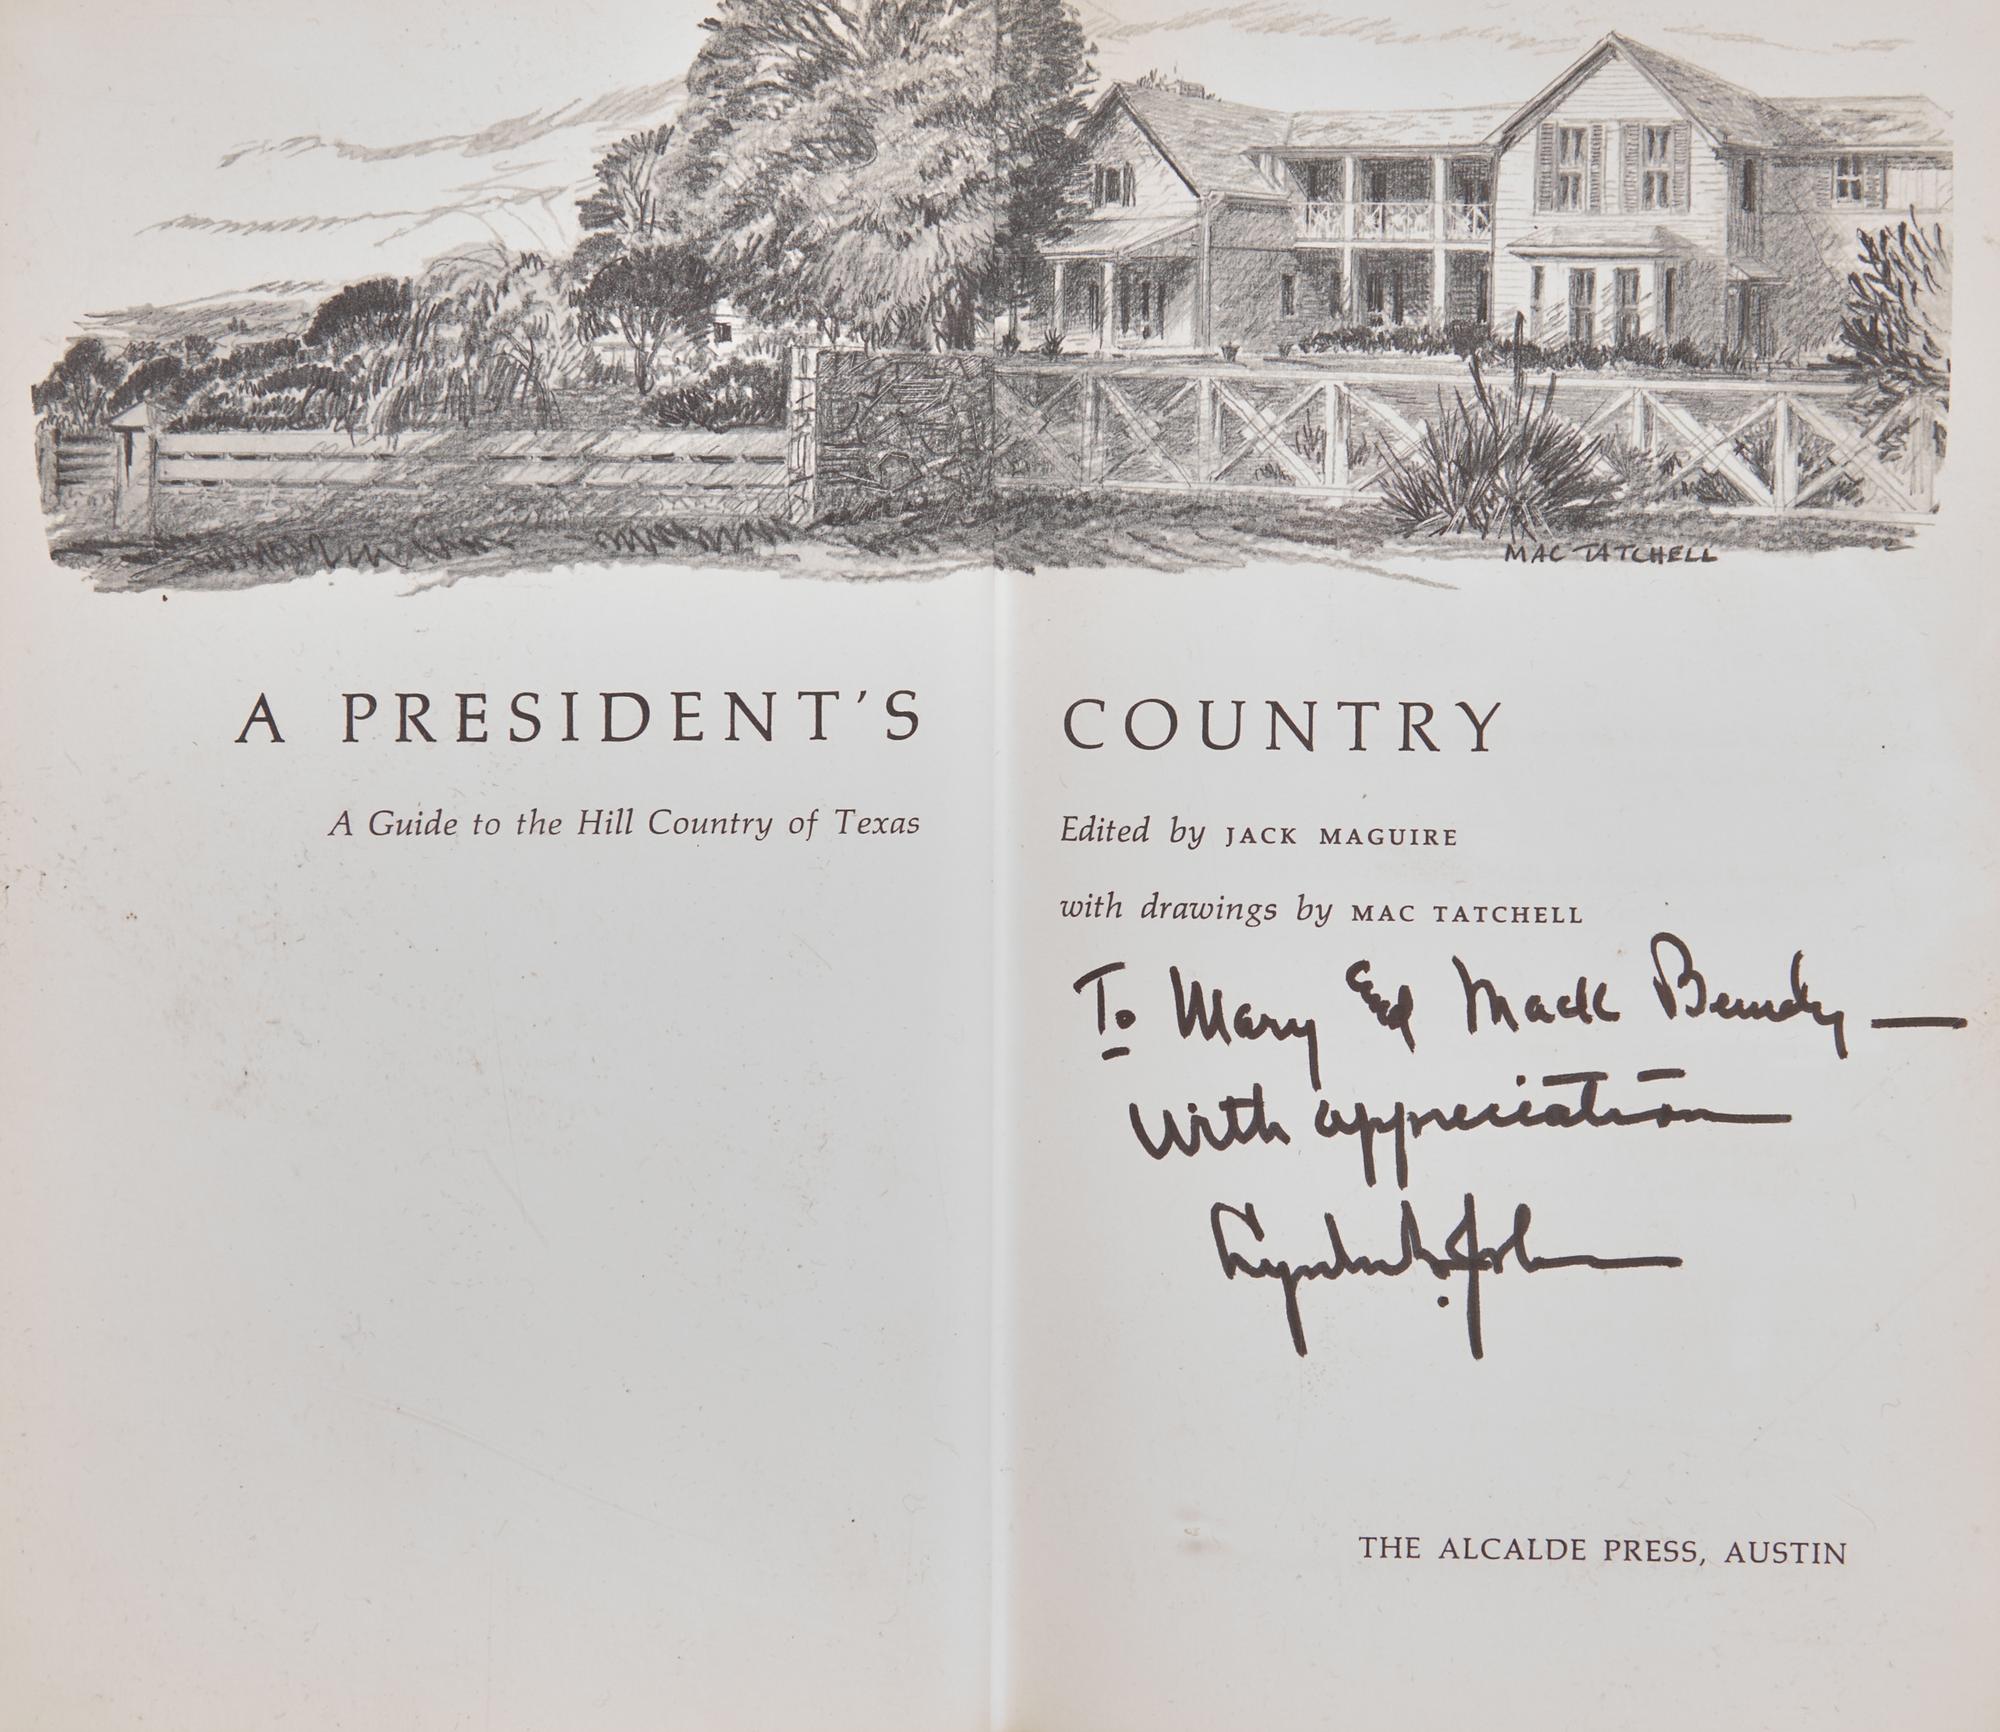 MAC TATCHELL
A PRESIDENT'S COUNTRY
A Guide to the Hill Country of Texas
Edited by JACK MAGUIRE
with drawings by MAC TATCHELL
To Mary and Mack Bundy —
with appreciation
Lyndon B. Johnson
THE ALCALDE PRESS, AUSTIN